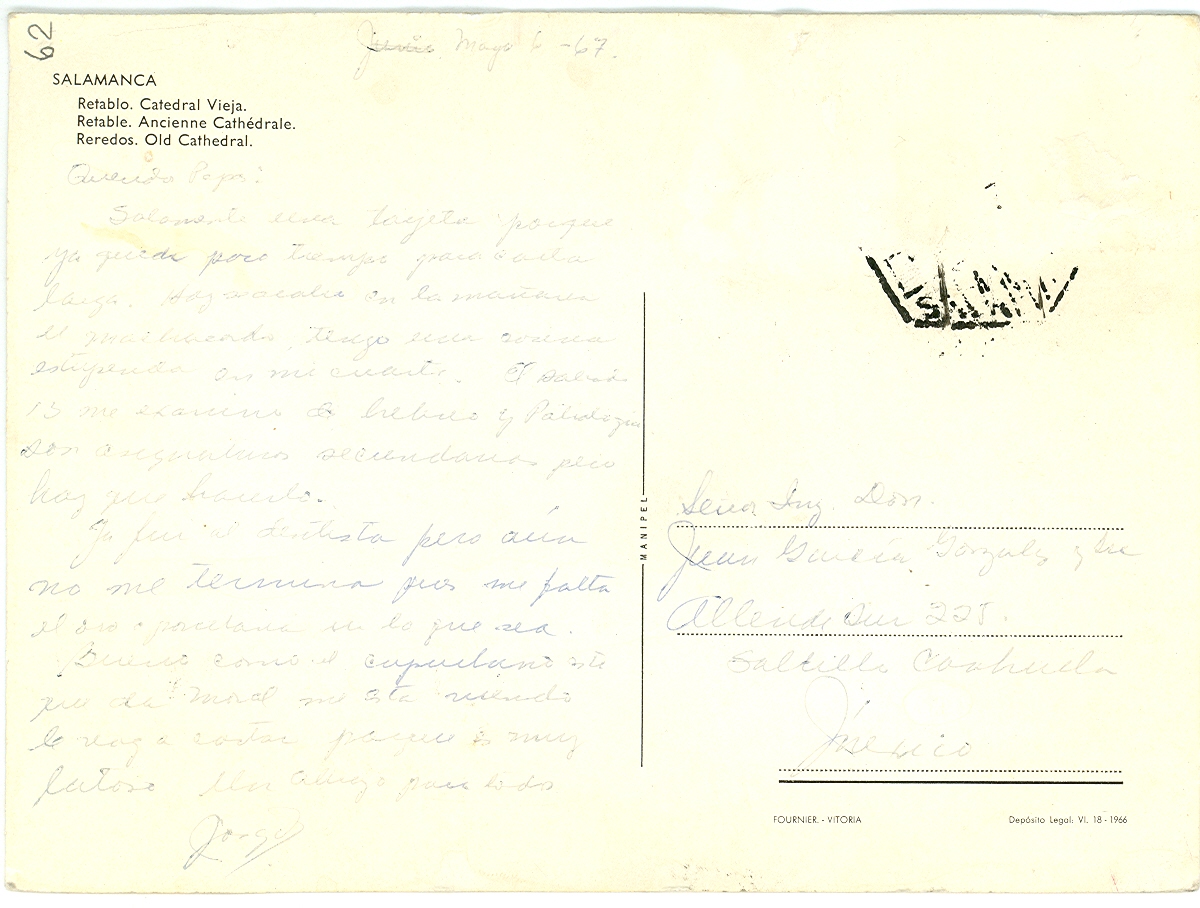 62
Junio Mayo 6 -67.
SALAMANCA
Retablo. Catedral Vieja.
Retable. Ancienne Cathédrale.
Reredos. Old Cathedral.
Querido Papa:
Solamente una tarjeta porque
ya queda poco tiempo para carta
larga. Hoy en la mañana
el tengo una
estupenda en mi cuarto. El sabado
13 me examino de hebreo y
son asignaturas secundarias pero
hay que hacerlo.
Ya fui al dentista pero aún
no me termina pues me falta
el oro o porcelana en lo que sea.
Bueno como el este
que da moral me esta
lo voy a cortar porque es muy
latoso Un abrazo para todos
Jorge
MANIPEL
Señor Ing. Don.
Juan García Gonzalez y Sra
Allende Sur 225.
Saltillo Coahuila
México
FOURNIER. - VITORIA
Depósito Legal: VI. 18 - 1966